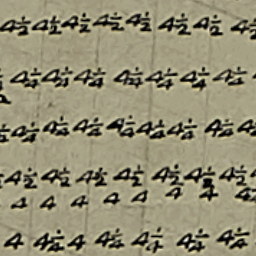 4½ 4½ 4½ 4½ 4½ 4½ 4½ 4½
4¼ 4¼ 4¼ 4¼ 4¼ 4¼ 4¼
4¼ 4¼ 4¼ 4¼ 4¼ 4¼ 4¼
4½ 4½ 4½ 4½ 4½ 4½ 4½
4 4 4 4 4 4 4
4 4¼ 4 4¼ 4¼ 4¼ 4¼